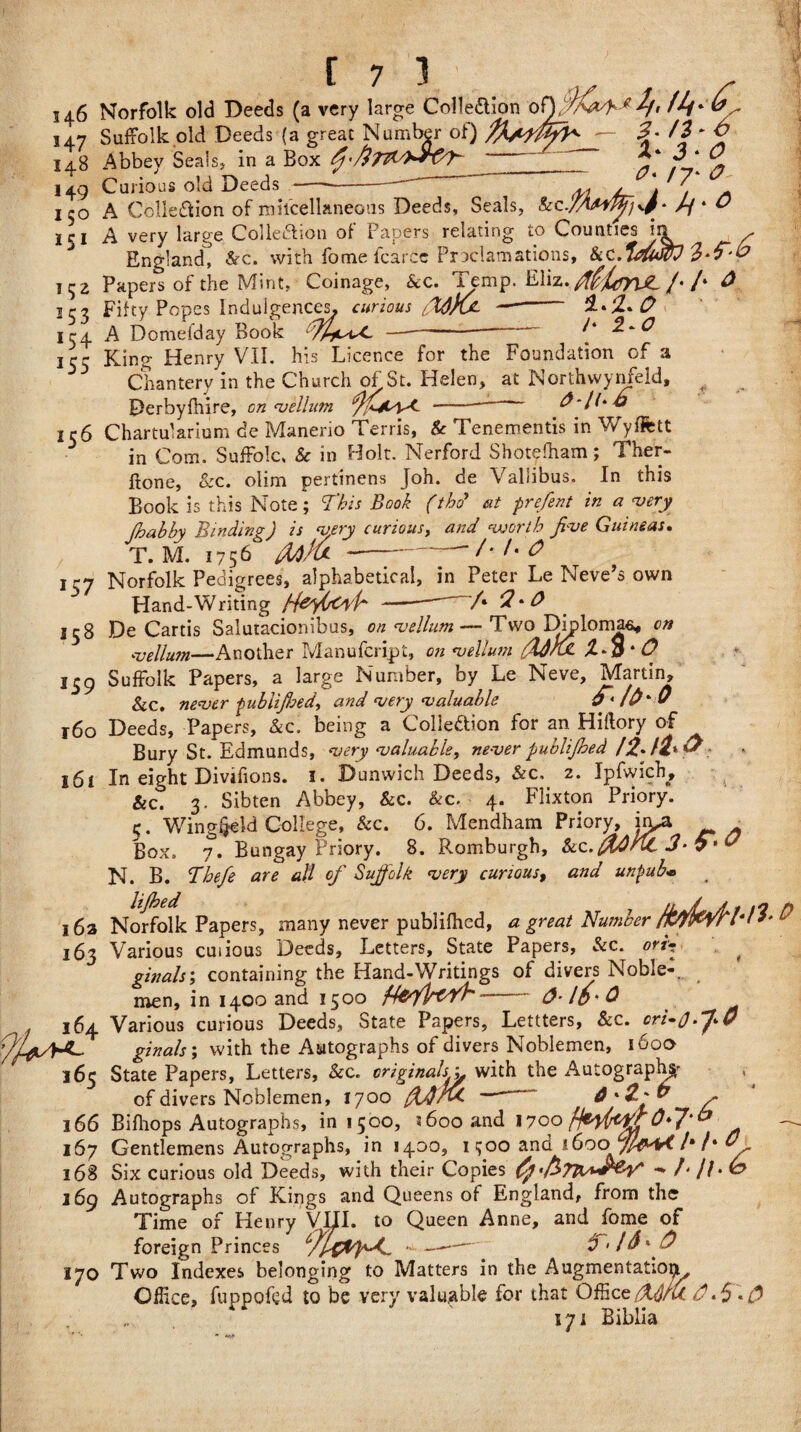 [ 7 ]
146 Norfolk old Deeds (a very large Collection of) 4. 14. 6
147 Suffolk old Deeds (a great Number of) — 3. 13 - 6
148 Abbey Seals, in a Box — 2. 3. 0
149 Curious old Deeds — 0. 17. 0
150 A Collection of miſcellaneous Deeds, Seals, &c. 4. 0
151 A very large Collection of Papers relating to Counties in
England, &c. with ſome ſcarce Proclamations, &c. 3. 5. 6
152 Papers of the Mint, Coinage, &c. Temp. Eliz. 1. 1. 0
153 Fifty Popes Indulgences, curious — 2. 2. 0
154 A Domeſday Book — 1. 2. 0
155 King Henry VII. his Licence for the Foundation of a
Chantery in the Church of St. Helen, at Northwynfeld,
Derbyſhire, on vellum — 0. 11. 6
156 Chartularium de Manerio Terris, & Tenementis in Wyſſett
in Com. Suffolc. & in Holt. Nerford Shoteſham; Ther-
ſtone, &c. olim pertinens Joh. de Vallibus. In this
Book is this Note; This Book (tho' at preſent in a very
ſhabby Binding) is very curious, and worth five Guineas.
T. M. 1756 — 1. 1. 0
157 Norfolk Pedigrees, alphabetical, in Peter Le Neve's own
Hand-Writing — 1. 2. 0
158 De Cartis Salutacionibus, on vellum — Two Diplomas, on
vellum—Another Manuſcript, on vellum 2. 3. 0
159 Suffolk Papers, a large Number, by Le Neve, Martin,
&c. never publiſhed, and very valuable 5. 10. 0
160 Deeds, Papers, &c. being a Collection for an Hiſtory of
Bury St. Edmunds, very valuable, never publiſhed 12. 12. 0
161 In eight Diviſions. 1. Dunwich Deeds, &c. 2. Ipſwich,
&c. 3. Sibten Abbey, &c. &c. 4. Flixton Priory.
5. Wingfield College, &c. 6. Mendham Priory, in a
Box. 7. Bungay Priory. 8. Romburgh, &c. 3. 5. 0
N. B. Theſe are all of Suffolk very curious, and unpub-
liſhed
162 Norfolk Papers, many never publiſhed, a great Number 1. 13. 0
163 Various curious Deeds, Letters, State Papers, &c. ori-
ginals; containing the Hand-Writings of divers Noble-
men, in 1400 and 1500 — 0. 16. 0
164 Various curious Deeds, State Papers, Lettters, &c. ori- 0. 7. 0
ginals; with the Autographs of divers Noblemen, 1600
165 State Papers, Letters, &c. originals; with the Autographs
of divers Noblemen, 1700 — 0. 2. 6
166 Biſhops Autographs, in 1500, 1600 and 1700 0. 7. 6
167 Gentlemens Autographs, in 1400, 1500 and 1600 1. 1. 0
168 Six curious old Deeds, with their Copies - 1. 11. 6
169 Autographs of Kings and Queens of England, from the
Time of Henry VIII. to Queen Anne, and ſome of
foreign Princes — 5. 10. 0
170 Two Indexes belonging to Matters in the Augmentation
Office, ſuppoſed to be very valuable for that Office 0. 5. 0
171 Biblia